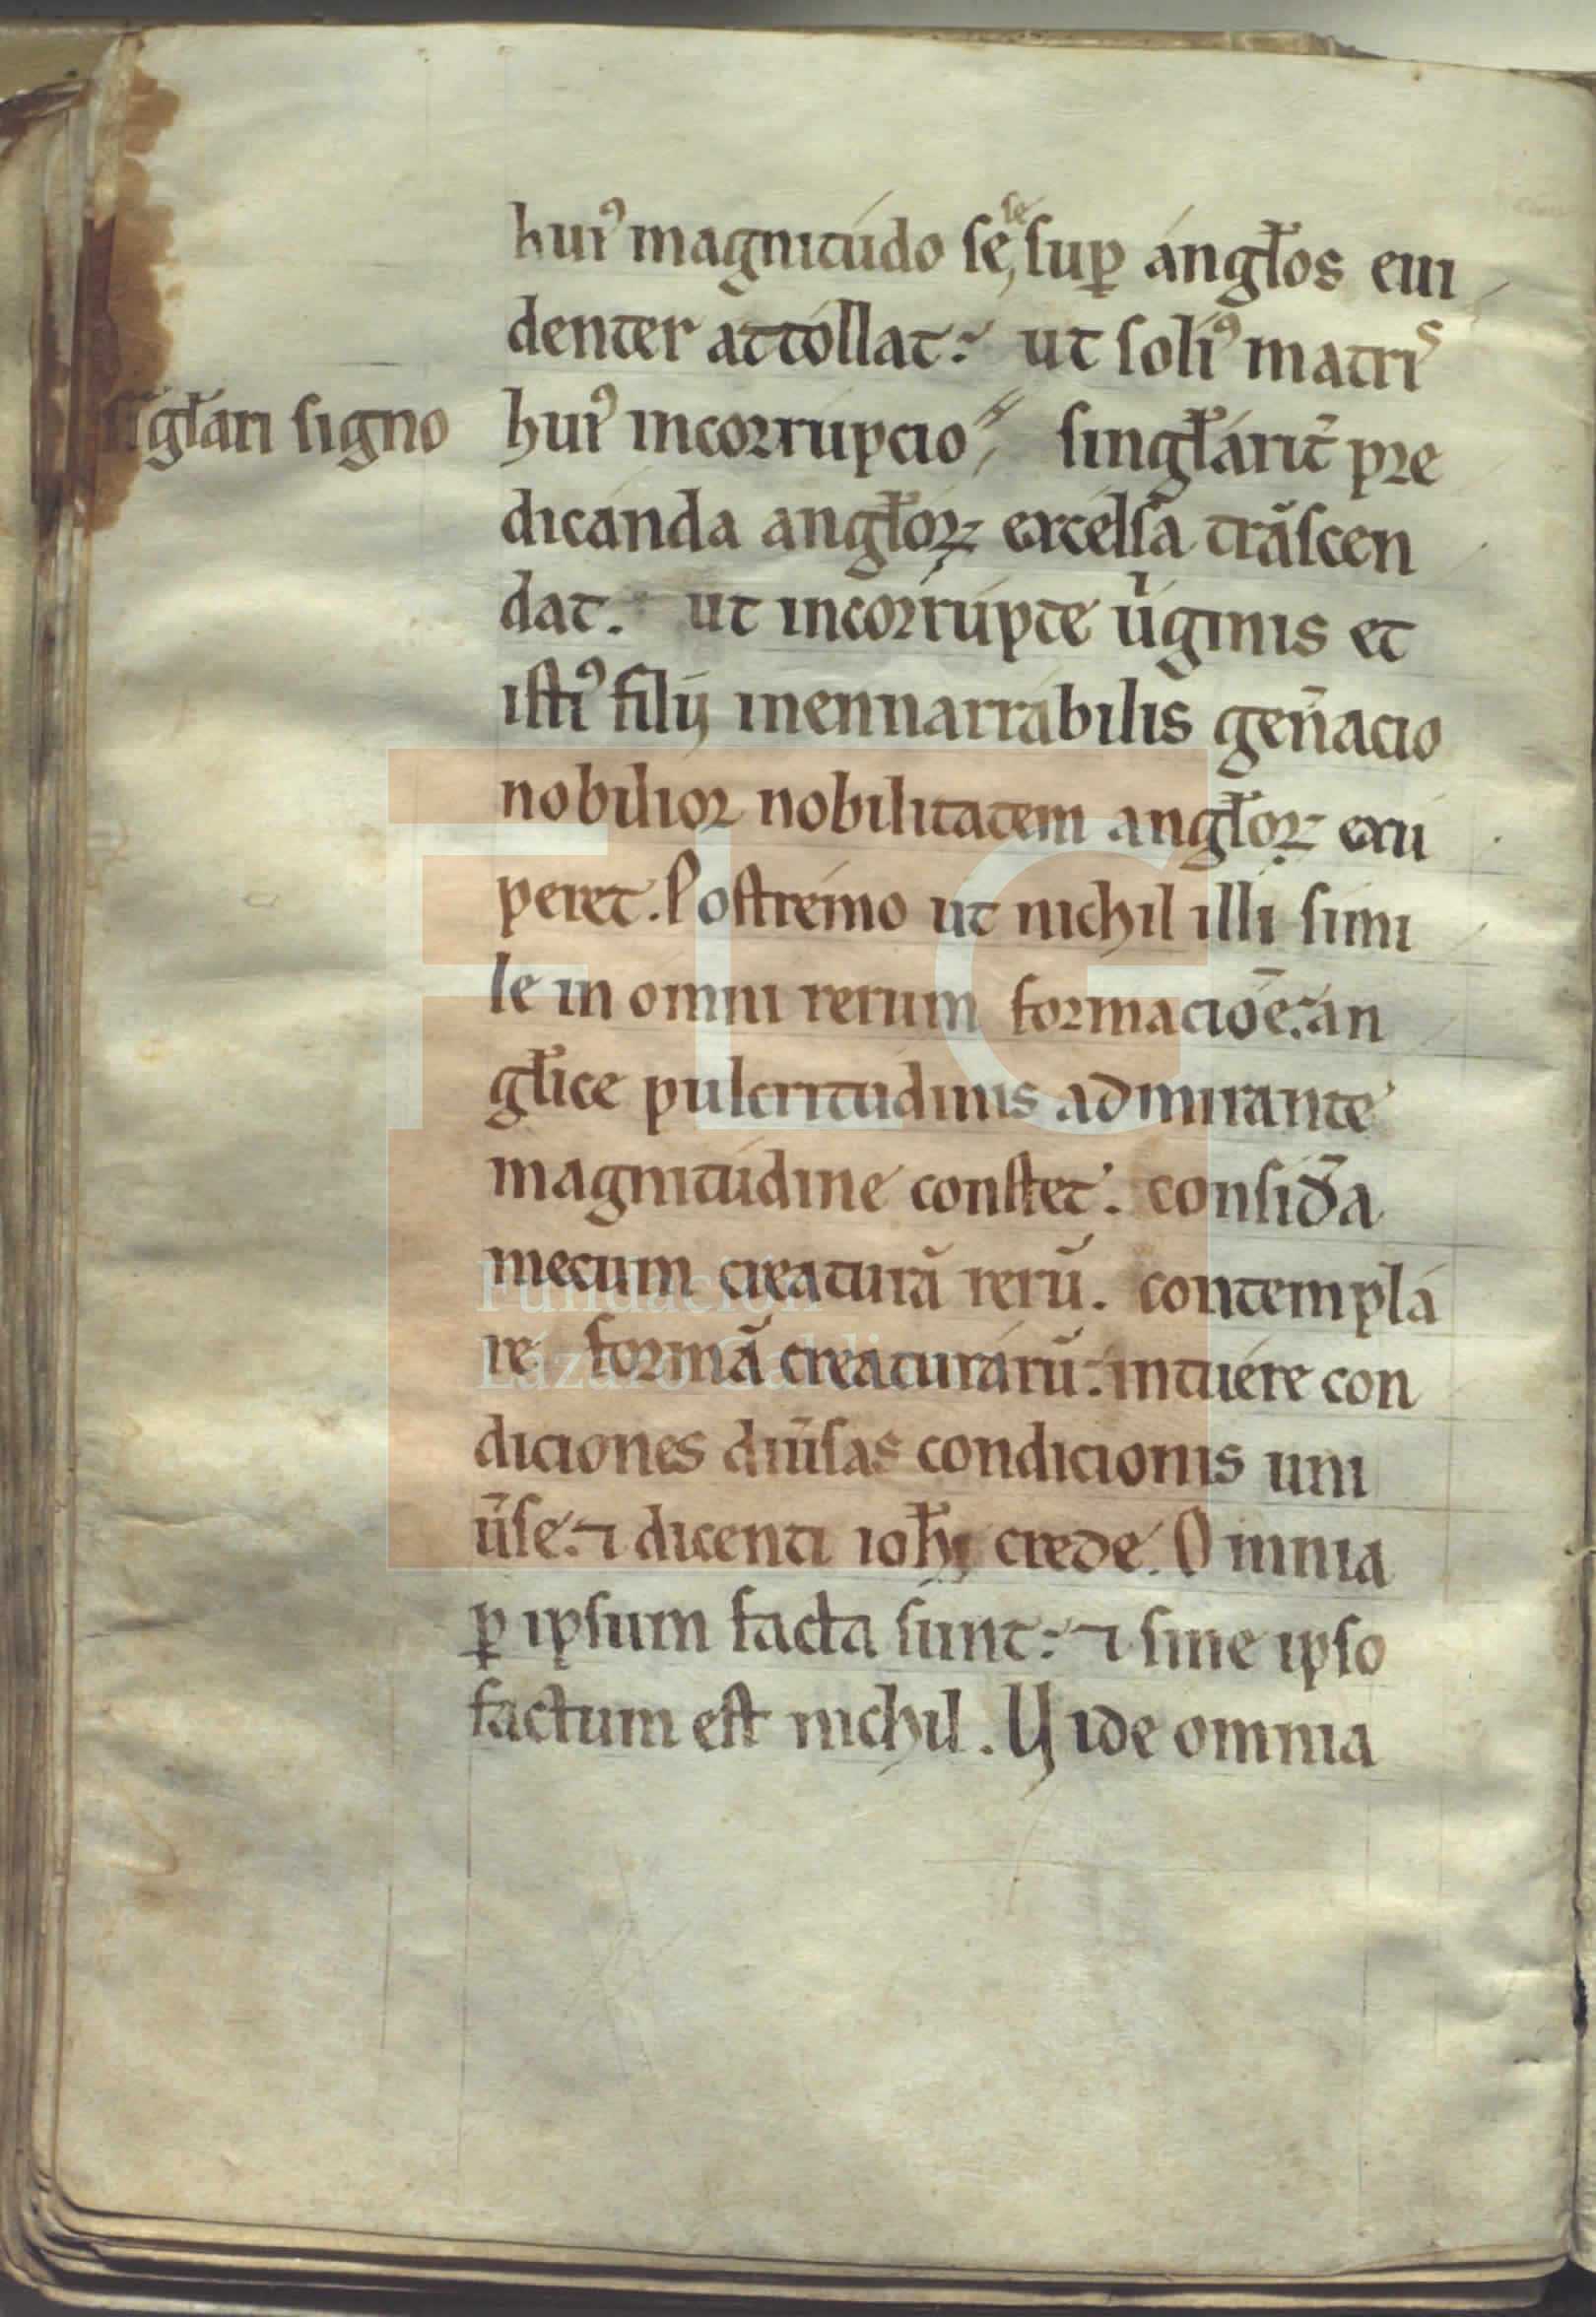 huiꝰ magnitudo se se suꝑ angłos eui
denter attollat: ut soliꝰ matris
singłari signo
huiꝰ incorrupcio singłarit̃ pre
dicanda angłoꝝ excelsa trãscen
dat. ut incorrupte uiginis et
istiꝰ filij inennarrabilis gen̄acio
nobilior nobilitatem angłoꝝ exu
peret. Postremo ut nichil illi simi
le in omni rerum formacioē: an
głice pulcritudinis admirante
magnitudine constet. consid̄a
mecum creaturā rerū. contempla
re formā creaturarū: intuere con
diciones diu̅sas condicionis uni
u̅se. ⁊ dicenti ioħi crede. Omnia
ꝑ ipsum facta sunt: ⁊ sine ipso
factum est nichil. Vide omnia
FLG
Fundación
Lázaro Galdiano